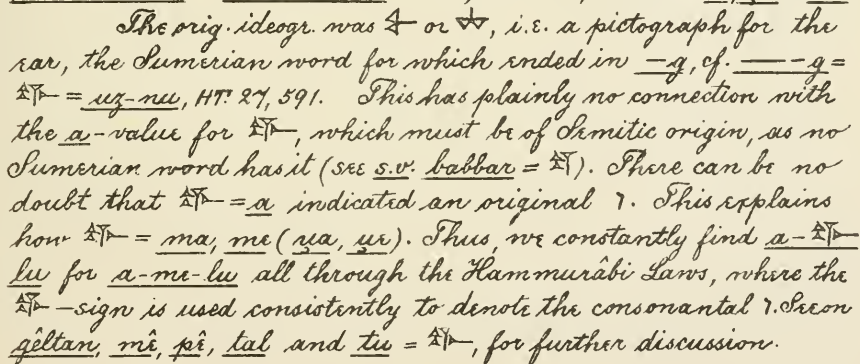 The orig. ideogr. was or , i.e. a pictograph for the
ear, the Sumerian word for which ended in —g, cf. ———g =
𒉿 = uz-nu, HT. 27, 591. This has plainly no connection with
the a-value for 𒉿, which must be of Semitic origin, as no
Sumerian word has it (see s.v. babbar = 𒌓). There can be no
doubt that 𒉿 = a indicated an original ו. This explains
how 𒉿 = ma, me (u̯a, u̯e). Thus, we constantly find a-𒉿-
lu for a-me-lu all through the Hammurâbi Laws, where the
𒉿-sign is used consistently to denote the consonantal ו. See on
gêltan, mê, pê, tal and tu = 𒉿, for further discussion.